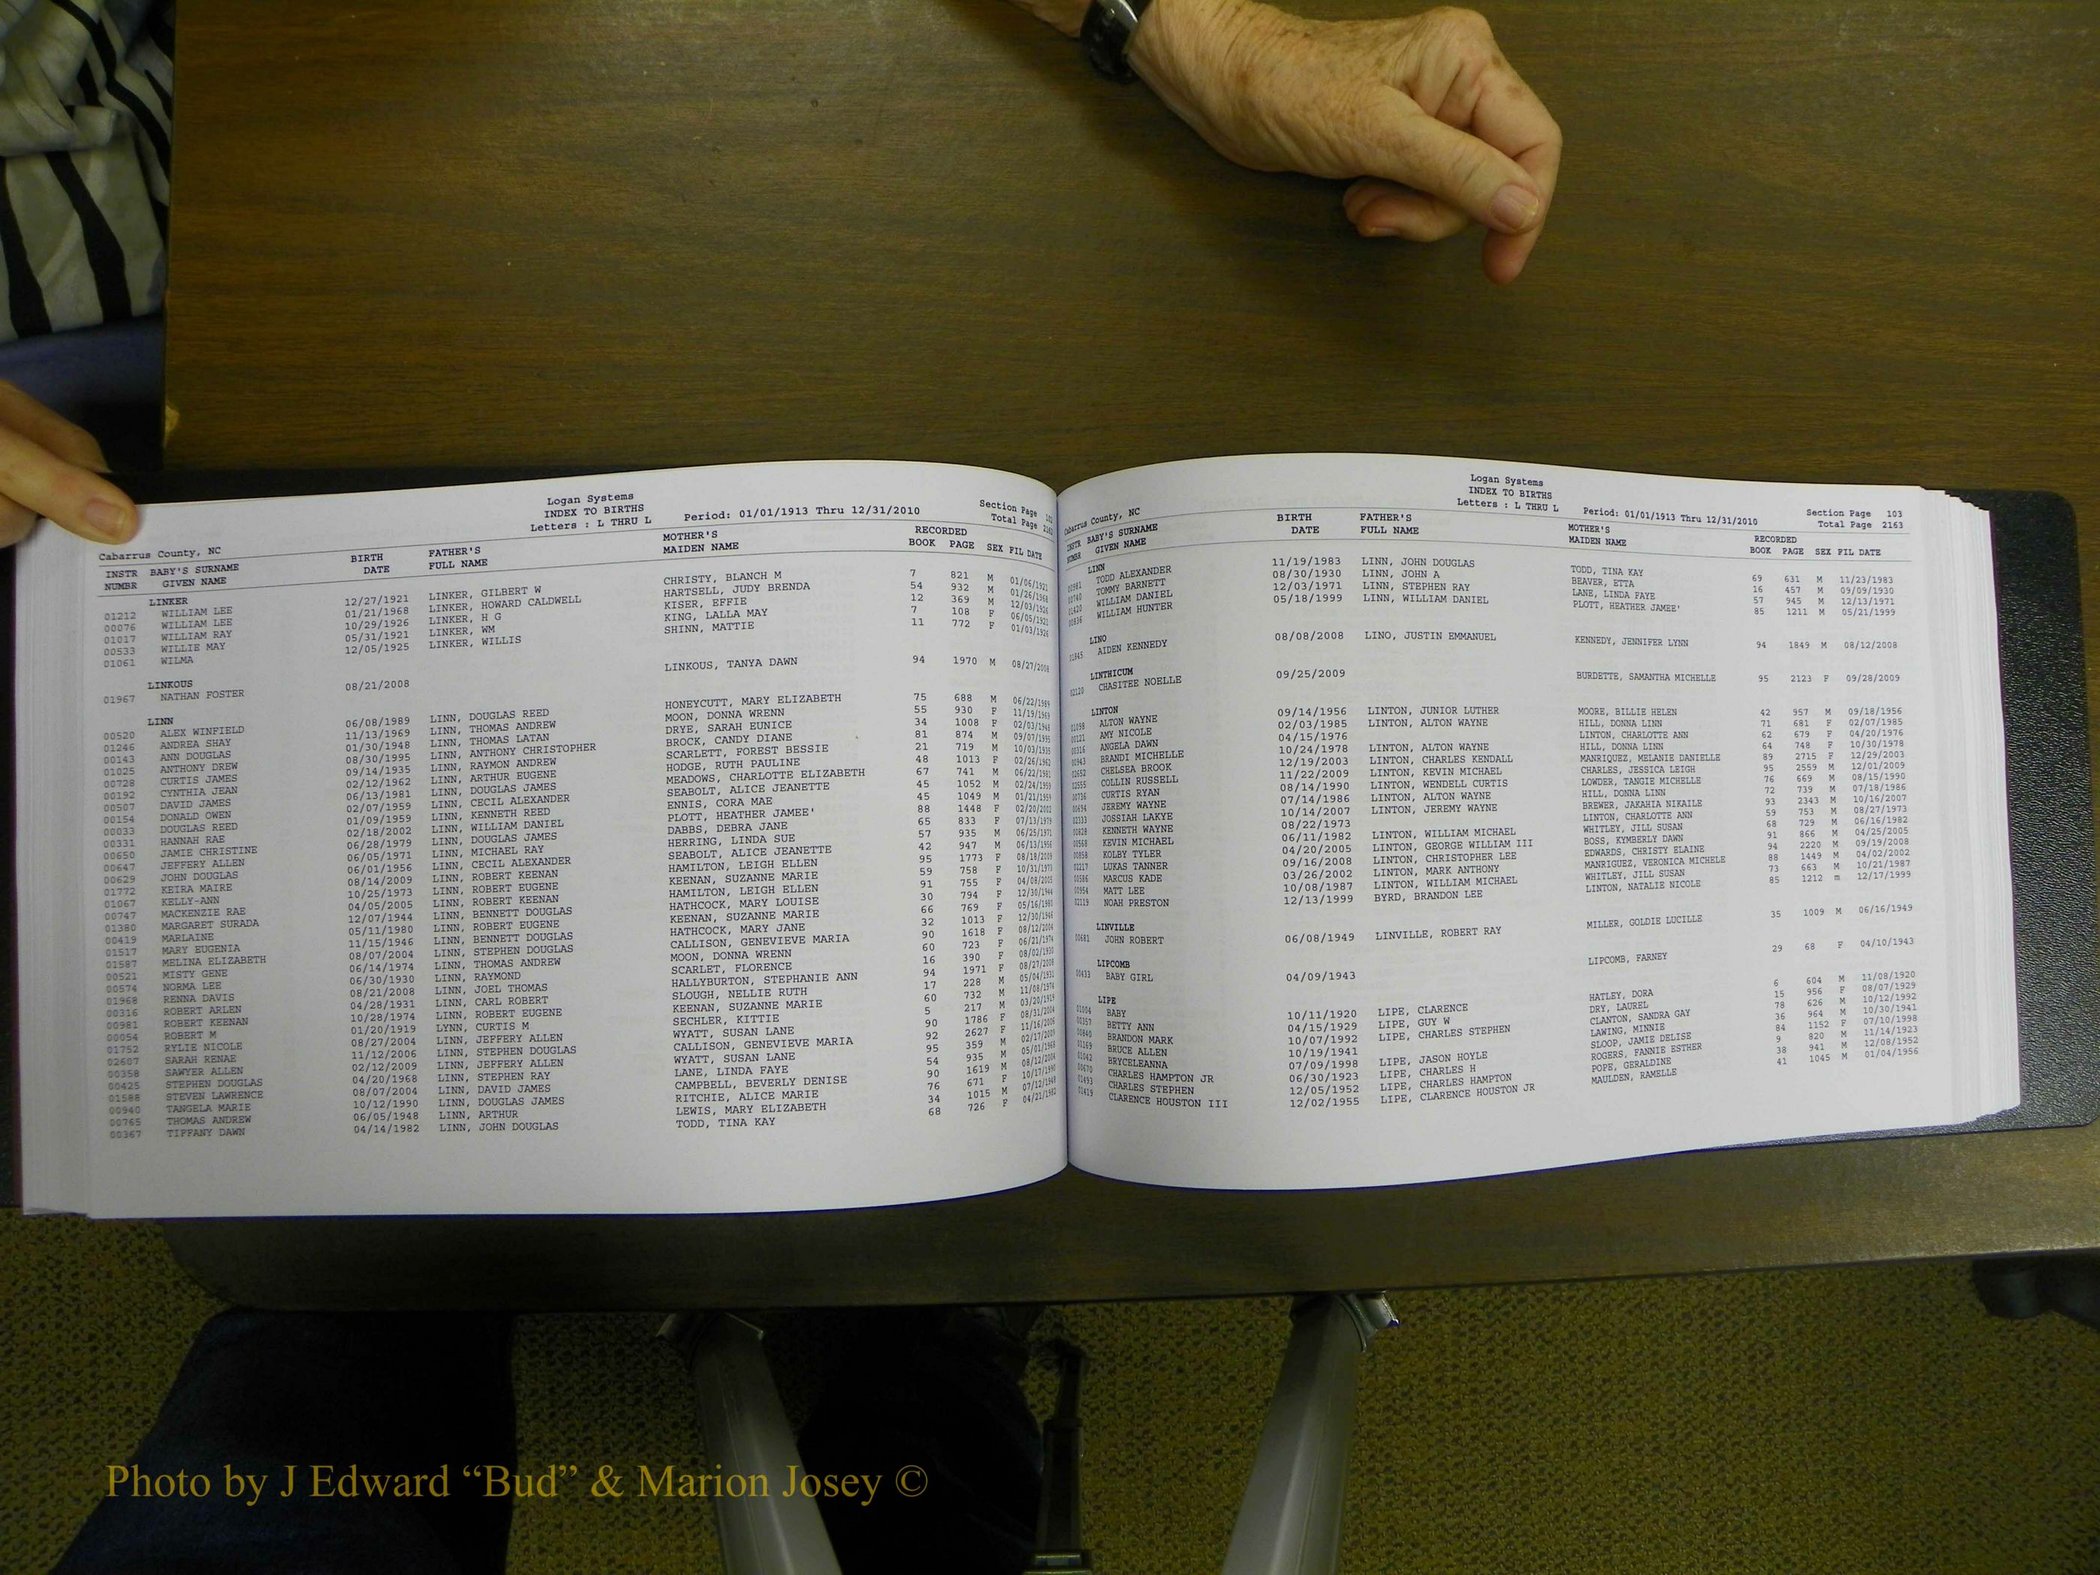 Logan Systems
INDEX TO BIRTHS
Letters : L THRU L Period: 01/01/1913 Thru 12/31/2010
Section Page
Total Page
Cabarrus County, NC
INSTR BABY'S SURNAME BIRTH FATHER'S MOTHER'S RECORDED
NUMBR GIVEN NAME DATE FULL NAME MAIDEN NAME BOOK PAGE SEX FIL DATE
LINKER
01212 WILLIAM LEE 12/27/1921 LINKER, GILBERT W CHRISTY, BLANCH M 7 821 M
00076 WILLIAM LEE 01/21/1968 LINKER, HOWARD CALDWELL HARTSELL, JUDY BRENDA 54 932 M 01/26/1968
01017 WILLIAM RAY 10/29/1926 LINKER, H G KISER, EFFIE 12 369 M 12/03/1926
00533 WILLIE MAY 05/31/1921 LINKER, WM KING, LALLA MAY 7 108 F 06/05/1921
01061 WILMA 12/05/1925 LINKER, WILLIS SHINN, MATTIE 11 772 F 01/03/1926
LINKOUS
01967 NATHAN FOSTER 08/21/2008 LINKOUS, TANYA DAWN 94 1970 M 08/27/2008
LINN
00520 ALEX WINFIELD 06/08/1989 LINN, DOUGLAS REED HONEYCUTT, MARY ELIZABETH 75 688 M 06/22/1989
01246 ANDREA SHAY 11/13/1969 LINN, THOMAS ANDREW MOON, DONNA WRENN 55 930 F 11/19/1969
00143 ANN DOUGLAS 01/30/1948 LINN, THOMAS LATAN DRYE, SARAH EUNICE 34 1008 F 02/03/1948
01025 ANTHONY DREW 08/30/1995 LINN, ANTHONY CHRISTOPHER BROCK, CANDY DIANE 81 874 M 09/07/1995
00728 CURTIS JAMES 09/14/1935 LINN, RAYMON ANDREW SCARLETT, FOREST BESSIE 21 719 M 10/03/1935
00192 CYNTHIA JEAN 02/12/1962 LINN, ARTHUR EUGENE HODGE, RUTH PAULINE 48 1013 F 02/26/1962
00507 DAVID JAMES 06/13/1981 LINN, DOUGLAS JAMES MEADOWS, CHARLOTTE ELIZABETH 67 741 M 06/22/1981
00154 DONALD OWEN 02/07/1959 LINN, CECIL ALEXANDER SEABOLT, ALICE JEANETTE 45 1052 M 02/24/1959
00033 DOUGLAS REED 01/09/1959 LINN, KENNETH REED ENNIS, CORA MAE 45 1049 M 01/21/1959
00331 HANNAH RAE 02/18/2002 LINN, WILLIAM DANIEL PLOTT, HEATHER JAMEE' 88 1448 F 02/20/2002
00650 JAMIE CHRISTINE 06/28/1979 LINN, DOUGLAS JAMES DABBS, DEBRA JANE 65 833 F 07/13/1979
00647 JEFFERY ALLEN 06/05/1971 LINN, MICHAEL RAY HERRING, LINDA SUE 57 935 M 06/25/1971
00629 JOHN DOUGLAS 06/01/1956 LINN, CECIL ALEXANDER SEABOLT, ALICE JEANETTE 42 947 M 06/13/1956
01772 KEIRA MAIRE 08/14/2009 LINN, ROBERT KEENAN HAMILTON, LEIGH ELLEN 95 1773 F 08/18/2009
01067 KELLY-ANN 10/25/1973 LINN, ROBERT EUGENE KEENAN, SUZANNE MARIE 59 758 F 10/31/1973
00747 MACKENZIE RAE 04/05/2005 LINN, ROBERT KEENAN HAMILTON, LEIGH ELLEN 91 755 F 04/08/2005
01380 MARGARET SURADA 12/07/1944 LINN, BENNETT DOUGLAS HATHCOCK, MARY LOUISE 30 794 F 12/30/1944
00419 MARLAINE 05/11/1980 LINN, ROBERT EUGENE KEENAN, SUZANNE MARIE 66 769 F 05/16/1980
01517 MARY EUGENIA 11/15/1946 LINN, BENNETT DOUGLAS HATHCOCK, MARY JANE 32 1013 F 12/30/1946
01587 MELINA ELIZABETH 08/07/2004 LINN, STEPHEN DOUGLAS CALLISON, GENEVIEVE MARIA 90 1618 F 08/12/2004
00521 MISTY GENE 06/14/1974 LINN, THOMAS ANDREW MOON, DONNA WRENN 60 723 F 06/21/1974
00574 NORMA LEE 06/30/1930 LINN, RAYMOND SCARLET, FLORENCE 16 390 F 08/02/1930
01968 RENNA DAVIS 08/21/2008 LINN, JOEL THOMAS HALLYBURTON, STEPHANIE ANN 94 1971 F 08/27/2008
00316 ROBERT ARLEN 04/28/1931 LINN, CARL ROBERT SLOUGH, NELLIE RUTH 17 228 M 05/04/1931
00981 ROBERT KEENAN 10/28/1974 LINN, ROBERT EUGENE KEENAN, SUZANNE MARIE 60 732 M 11/08/1974
00054 ROBERT M 01/20/1919 LYNN, CURTIS M SECHLER, KITTIE 5 217 M 03/20/1919
01752 RYLIE NICOLE 08/27/2004 LINN, JEFFERY ALLEN WYATT, SUSAN LANE 90 1786 F 08/31/2004
02607 SARAH RENAE 11/12/2006 LINN, STEPHEN DOUGLAS CALLISON, GENEVIEVE MARIA 92 2627 F 11/16/2006
00358 SAWYER ALLEN 02/12/2009 LINN, JEFFERY ALLEN WYATT, SUSAN LANE 95 359 M 02/17/2009
00425 STEPHEN DOUGLAS 04/20/1968 LINN, STEPHEN RAY LANE, LINDA FAYE 54 935 M 05/01/1968
01588 STEVEN LAWRENCE 08/07/2004 LINN, DAVID JAMES CAMPBELL, BEVERLY DENISE 90 1619 M 08/12/2004
00940 TANGELA MARIE 10/12/1990 LINN, DOUGLAS JAMES RITCHIE, ALICE MARIE 76 671 F 10/17/1990
00765 THOMAS ANDREW 06/05/1948 LINN, ARTHUR LEWIS, MARY ELIZABETH 34 1015 M 07/12/1948
00367 TIFFANY DAWN 04/14/1982 LINN, JOHN DOUGLAS TODD, TINA KAY 68 726 F 04/21/1982
Logan Systems
INDEX TO BIRTHS
Letters : L THRU L Period: 01/01/1913 Thru 12/31/2010
Section Page 103
Total Page 2163
Cabarrus County, NC
INSTR BABY'S SURNAME BIRTH FATHER'S MOTHER'S RECORDED
NUMBR GIVEN NAME DATE FULL NAME MAIDEN NAME BOOK PAGE SEX FIL DATE
LINN
00981 TODD ALEXANDER 11/19/1983 LINN, JOHN DOUGLAS TODD, TINA KAY 69 631 M 11/23/1983
00740 TOMMY BARNETT 08/30/1930 LINN, JOHN A BEAVER, ETTA 16 457 M 09/09/1930
01420 WILLIAM DANIEL 12/03/1971 LINN, STEPHEN RAY LANE, LINDA FAYE 57 945 M 12/13/1971
00836 WILLIAM HUNTER 05/18/1999 LINN, WILLIAM DANIEL PLOTT, HEATHER JAMEE' 85 1211 M 05/21/1999
LINO
01845 AIDEN KENNEDY 08/08/2008 LINO, JUSTIN EMMANUEL KENNEDY, JENNIFER LYNN 94 1849 M 08/12/2008
LINTHICUM
02120 CHASITEE NOELLE 09/25/2009 BURDETTE, SAMANTHA MICHELLE 95 2123 F 09/28/2009
LINTON
01098 ALTON WAYNE 09/14/1956 LINTON, JUNIOR LUTHER MOORE, BILLIE HELEN 42 957 M 09/18/1956
00121 AMY NICOLE 02/03/1985 LINTON, ALTON WAYNE HILL, DONNA LINN 71 681 F 02/07/1985
00316 ANGELA DAWN 04/15/1976 LINTON, CHARLOTTE ANN 62 679 F 04/20/1976
00943 BRANDI MICHELLE 10/24/1978 LINTON, ALTON WAYNE HILL, DONNA LINN 64 748 F 10/30/1978
02652 CHELSEA BROOK 12/19/2003 LINTON, CHARLES KENDALL MANRIQUEZ, MELANIE DANIELLE 89 2715 F 12/29/2003
02555 COLLIN RUSSELL 11/22/2009 LINTON, KEVIN MICHAEL CHARLES, JESSICA LEIGH 95 2559 M 12/01/2009
00736 CURTIS RYAN 08/14/1990 LINTON, WENDELL CURTIS LOWDER, TANGIE MICHELLE 76 669 M 08/15/1990
00694 JEREMY WAYNE 07/14/1986 LINTON, ALTON WAYNE HILL, DONNA LINN 72 739 M 07/18/1986
02333 JOSSIAH LAKYE 10/14/2007 LINTON, JEREMY WAYNE BREWER, JAKAHIA NIKAILE 93 2343 M 10/16/2007
00828 KENNETH WAYNE 08/22/1973 LINTON, CHARLOTTE ANN 59 753 M 08/27/1973
00569 KEVIN MICHAEL 06/11/1982 LINTON, WILLIAM MICHAEL WHITLEY, JILL SUSAN 68 729 M 06/16/1982
00858 KOLBY TYLER 04/20/2005 LINTON, GEORGE WILLIAM III BOSS, KYMBERLY DAWN 91 866 M 04/25/2005
02217 LUKAS TANNER 09/16/2008 LINTON, CHRISTOPHER LEE EDWARDS, CHRISTY ELAINE 94 2220 M 09/19/2008
00586 MARCUS KADE 03/26/2002 LINTON, MARK ANTHONY MANRIGUEZ, VERONICA MICHELE 88 1449 M 04/02/2002
00954 MATT LEE 10/08/1987 LINTON, WILLIAM MICHAEL WHITLEY, JILL SUSAN 73 663 M 10/21/1987
02119 NOAH PRESTON 12/13/1999 BYRD, BRANDON LEE LINTON, NATALIE NICOLE 85 1212 m 12/17/1999
LINVILLE
00681 JOHN ROBERT 06/08/1949 LINVILLE, ROBERT RAY MILLER, GOLDIE LUCILLE 35 1009 M 06/16/1949
LIPCOMB
00433 BABY GIRL 04/09/1943 LIPCOMB, FARNEY 29 68 F 04/10/1943
LIPE
01004 BABY 10/11/1920 LIPE, CLARENCE HATLEY, DORA 6 604 M 11/08/1920
00357 BETTY ANN 04/15/1929 LIPE, GUY W DRY, LAUREL 15 956 F 08/07/1929
00840 BRANDON MARK 10/07/1992 LIPE, CHARLES STEPHEN CLANTON, SANDRA GAY 78 626 M 10/12/1992
01169 BRUCE ALLEN 10/19/1941 LAWING, MINNIE 36 964 M 10/30/1941
01042 BRYCELEANNA 07/09/1998 LIPE, JASON HOYLE SLOOP, JAMIE DELISE 84 1152 F 07/10/1998
00670 CHARLES HAMPTON JR 06/30/1923 LIPE, CHARLES H ROGERS, FANNIE ESTHER 9 820 M 11/14/1923
01493 CHARLES STEPHEN 12/05/1952 LIPE, CHARLES HAMPTON POPE, GERALDINE 38 941 M 12/08/1952
01419 CLARENCE HOUSTON III 12/02/1955 LIPE, CLARENCE HOUSTON JR MAULDEN, RAMELLE 41 1045 M 01/04/1956
Photo by J Edward “Bud” & Marion Josey ©